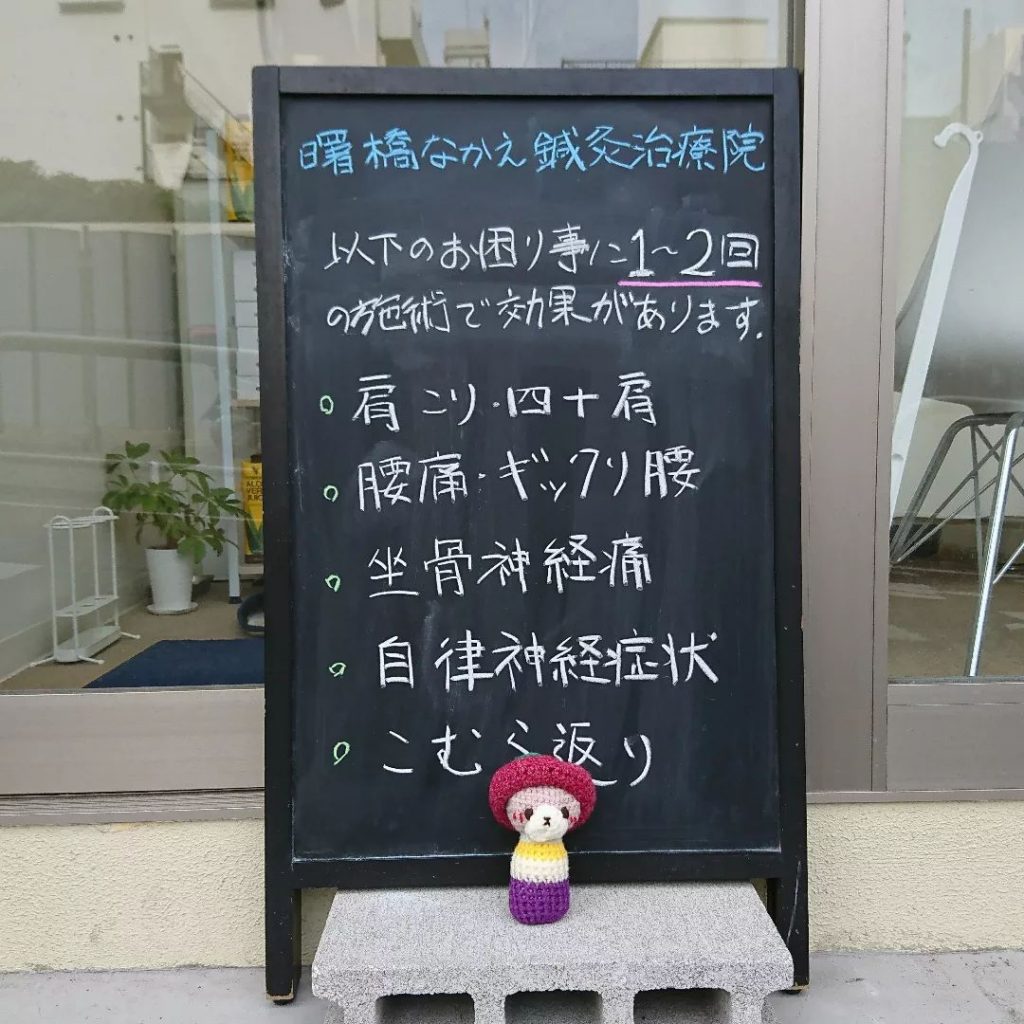 曙橋なかえ鍼灸治療院
以下のお困り事に1~2回
の施術で効果があります.
肩こり・四十肩
腰痛・ギックリ腰
坐骨神経痛
自律神経症状
こむら返り